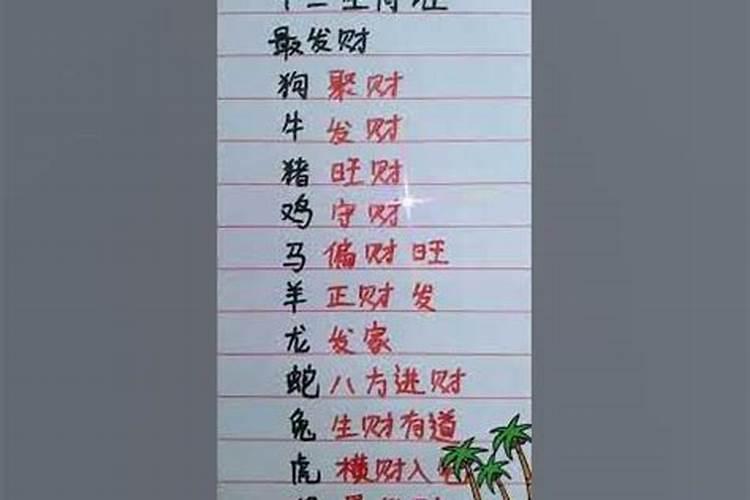 最发财
狗 聚财
牛 发财
猪 旺财
鸡 守财
马 偏财旺
羊 正财发
龙 发家
蛇 八方逃财
兔 生财有道
虎 横财入